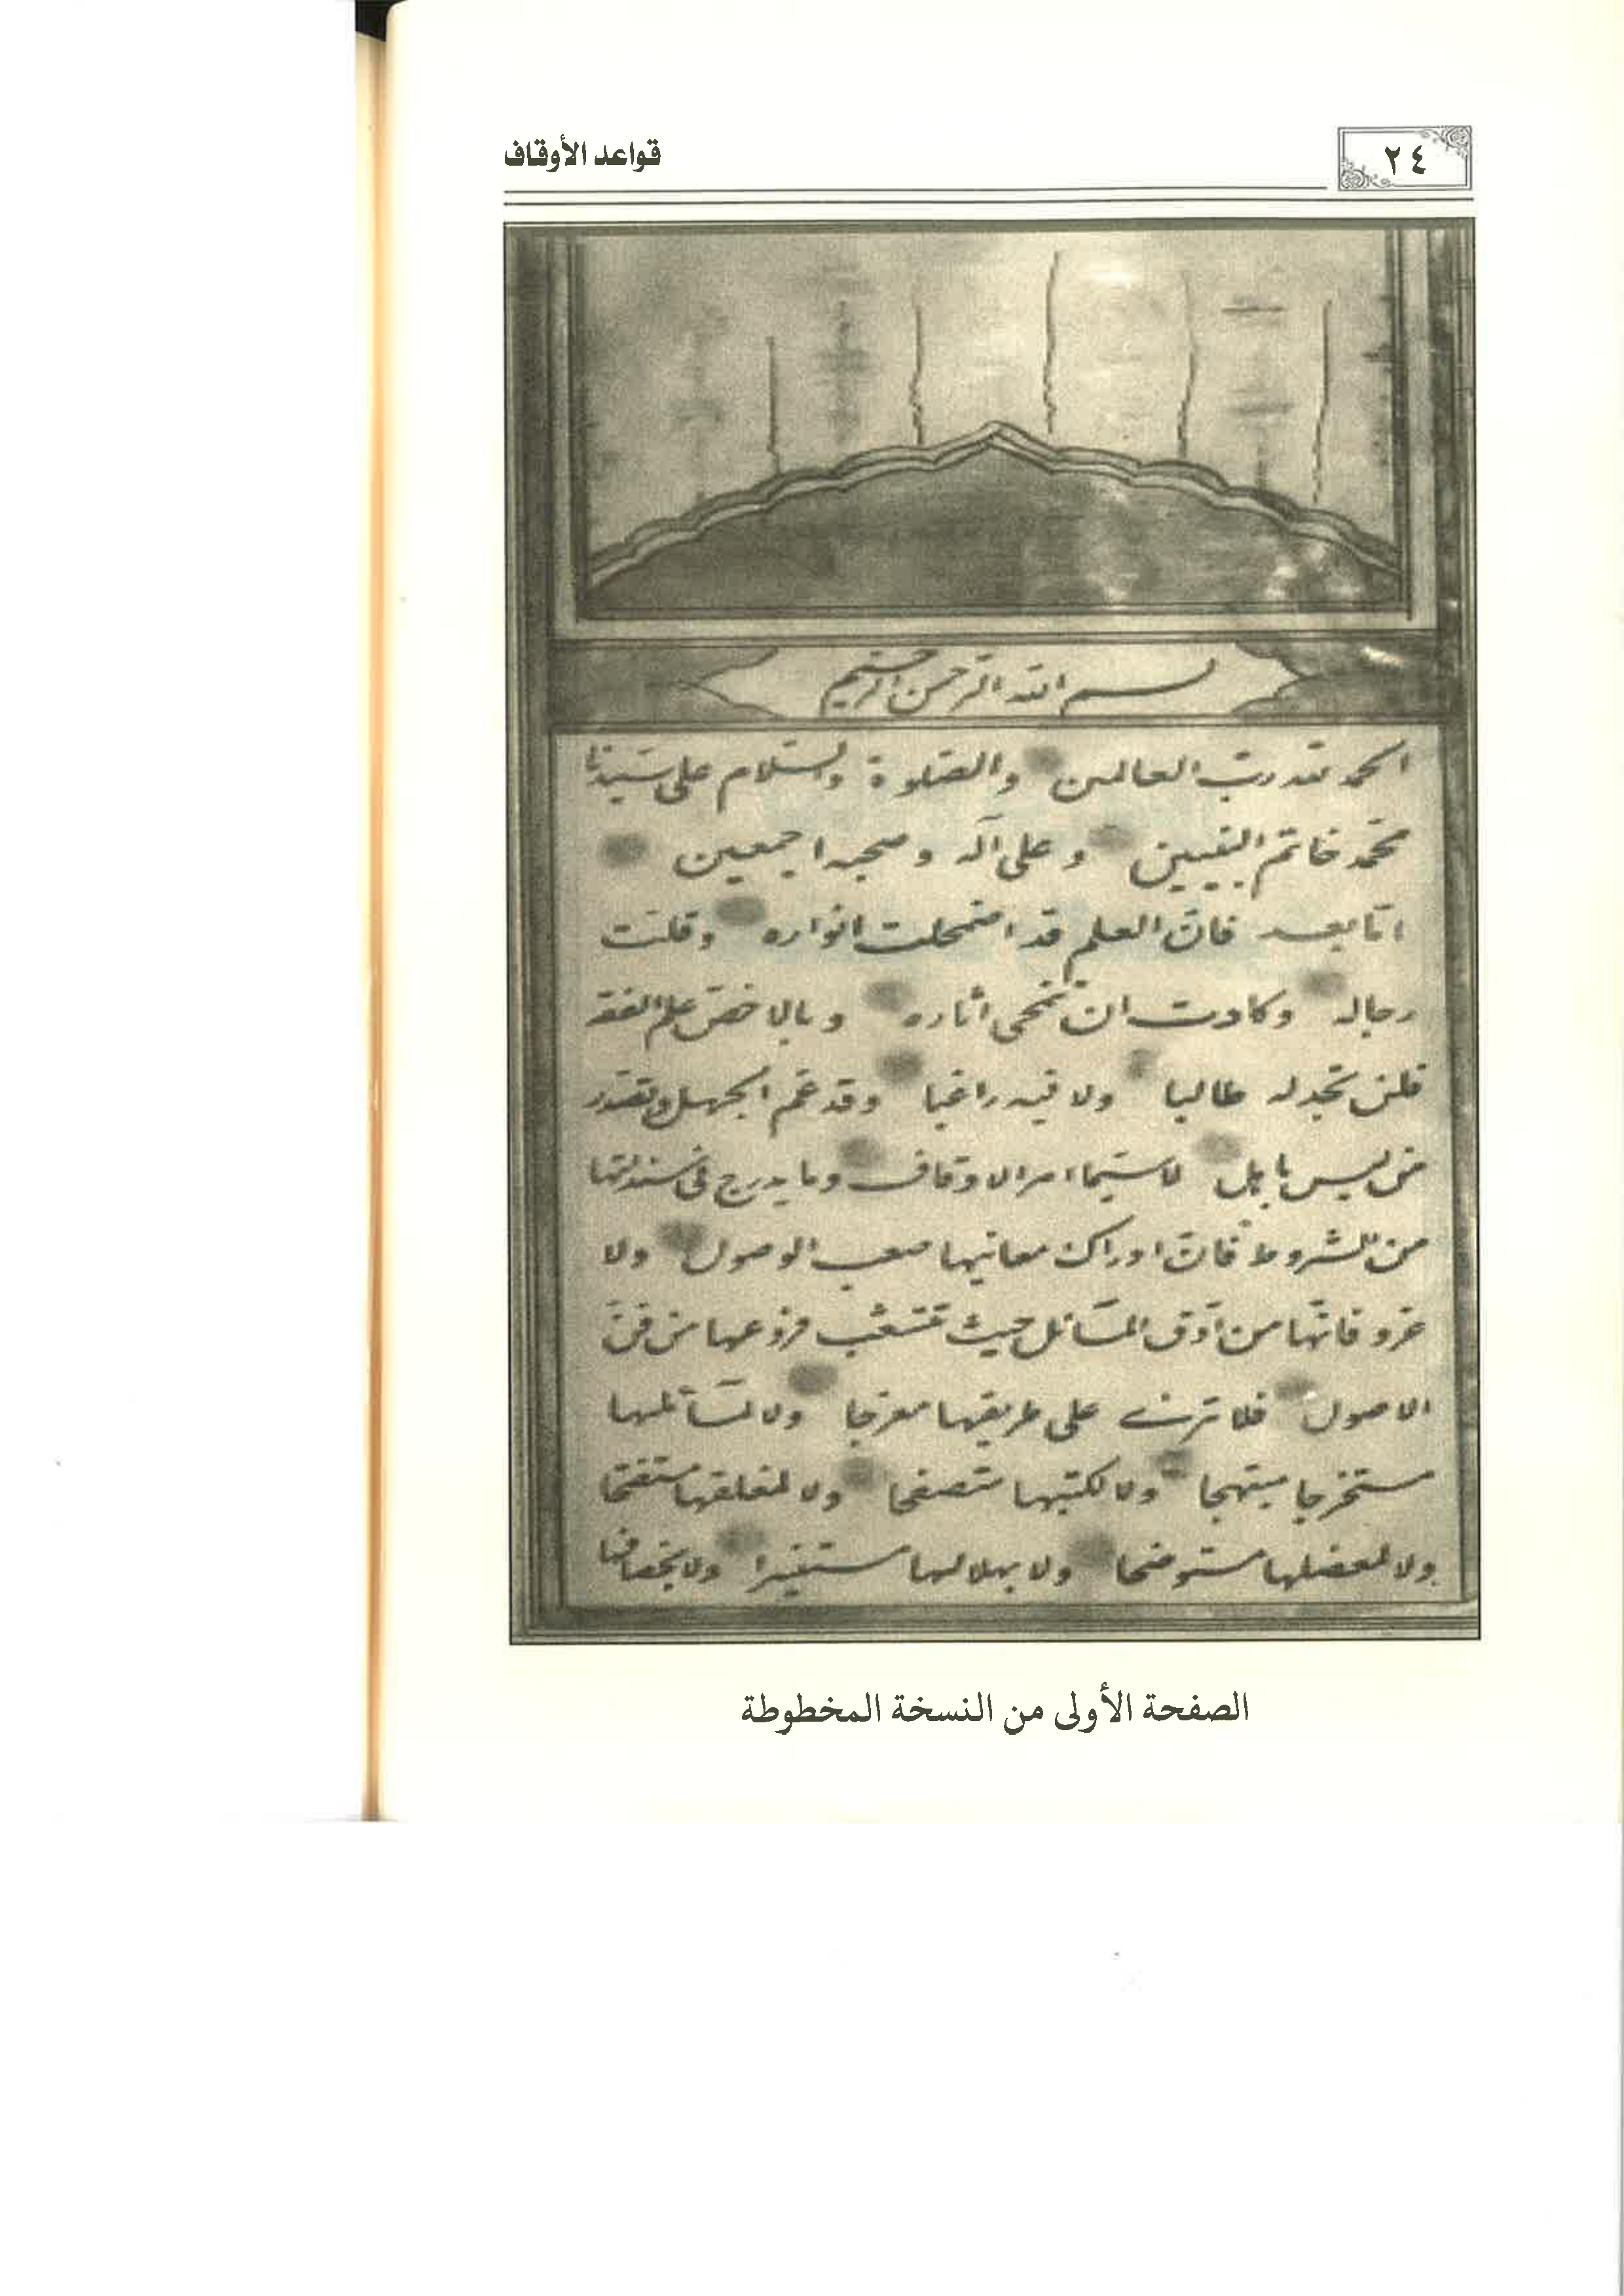 ٢٤
قواعد الأوقاف
بسم الله الرحمن الرحيم
الحمد لله رب العالمين والصلوة والسلام على سيدنا
محمد خاتم النبيين وعلى آله وصحبه اجمعين
اما بعد فان العلم قد اضمحلت انواره وقلت
رجاله وكادت ان تمحى اثاره وبالاخص علم الفقه
فلن تجد له طالبا ولا فيه راغبا وقد عم الجهل وتصدر
من ليس باهل لا سيما امر الاوقاف وما يدرج في
من الشروط فان ادراك معانيها صعب الوصول ولا
غرو فانها من ادق المسائل حيث تتشعب فروعها من فن
الاصول فلا ترى على طريقها معرجا ولا لمسائلها
مستخرجا مبتهجا ولا لكتبها متصفحا ولا لمغلقها مستفتحا
ولا لمعضلها مستوضحا ولا بهلالها مستنيرا ولا بخصافها
الصفحة الأولى من النسخة المخطوطة